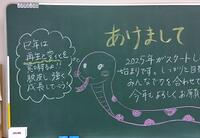 あけまして
巳年は
再生と変化を
意味するよ!!
根度し強く
成長してこう!
2025年がスタートし
始まりです。しっかりと目
みんなで力を合わせて
今年もよろしくお願